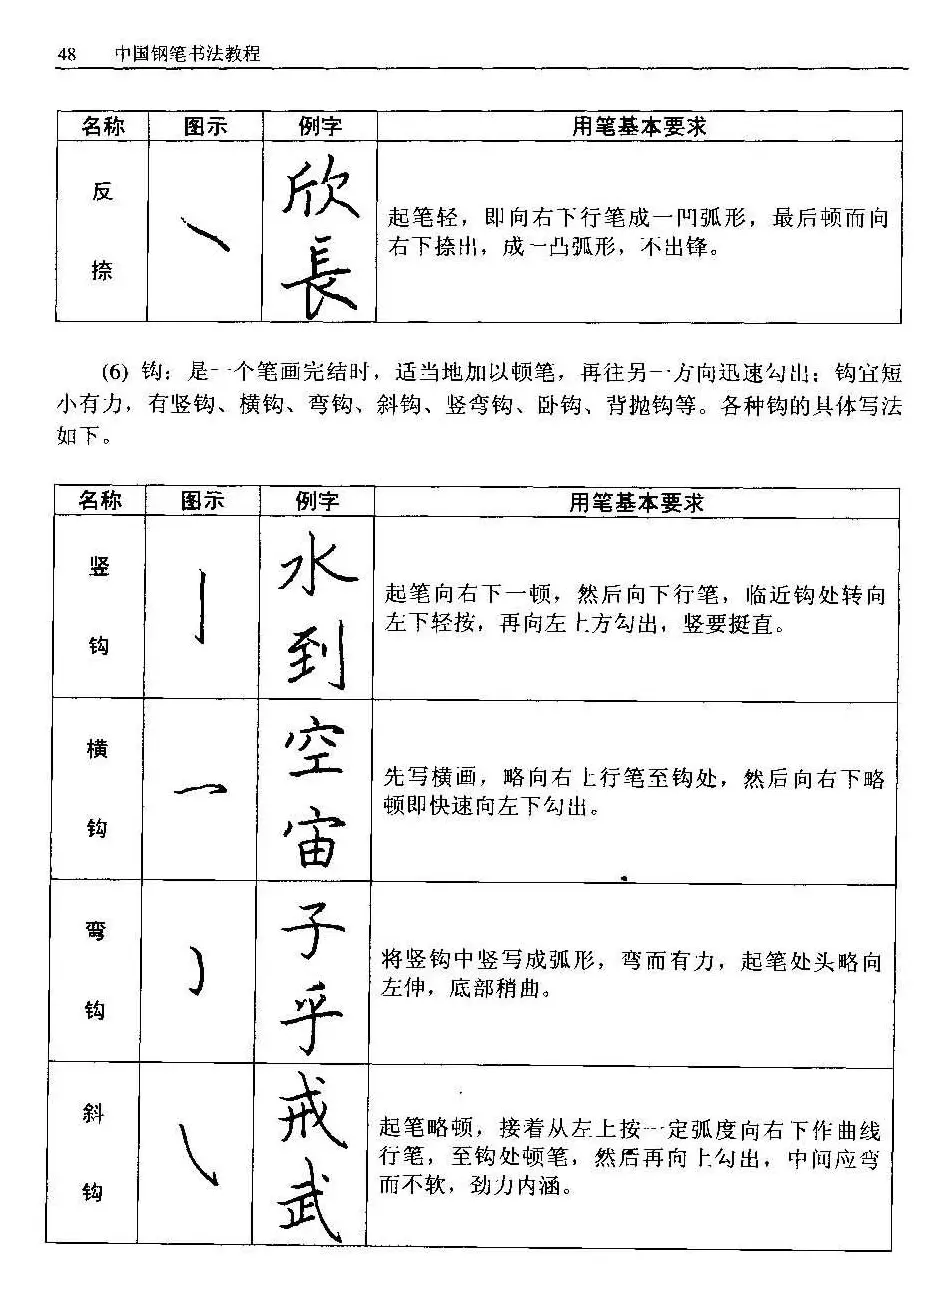 48 中国钢笔书法教程
名称 图示 例字 用笔基本要求
反
捺
欣
長
起笔轻，即向右下行笔成一凹弧形，最后顿而向
右下捺出，成一凸弧形，不出锋。
(6) 钩：是一个笔画完结时，适当地加以顿笔，再往另一方向迅速勾出；钩宜短
小有力，有竖钩、横钩、弯钩、斜钩、竖弯钩、卧钩、背抛钩等。各种钩的具体写法
如下。
名称 图示 例字 用笔基本要求
竖
钩
水
到
起笔向右下一顿，然后向下行笔，临近钩处转向
左下轻按，再向左上方勾出，竖要挺直。
横
钩
空
宙
先写横画，略向右上行笔至钩处，然后向右下略
顿即快速向左下勾出。
弯
钩
子
乎
将竖钩中竖写成弧形，弯而有力，起笔处头略向
左伸，底部稍曲。
斜
钩
戒
武
起笔略顿，接着从左上按一定弧度向右下作曲线
行笔，至钩处顿笔，然后再向上勾出，中间应弯
而不软，劲力内涵。